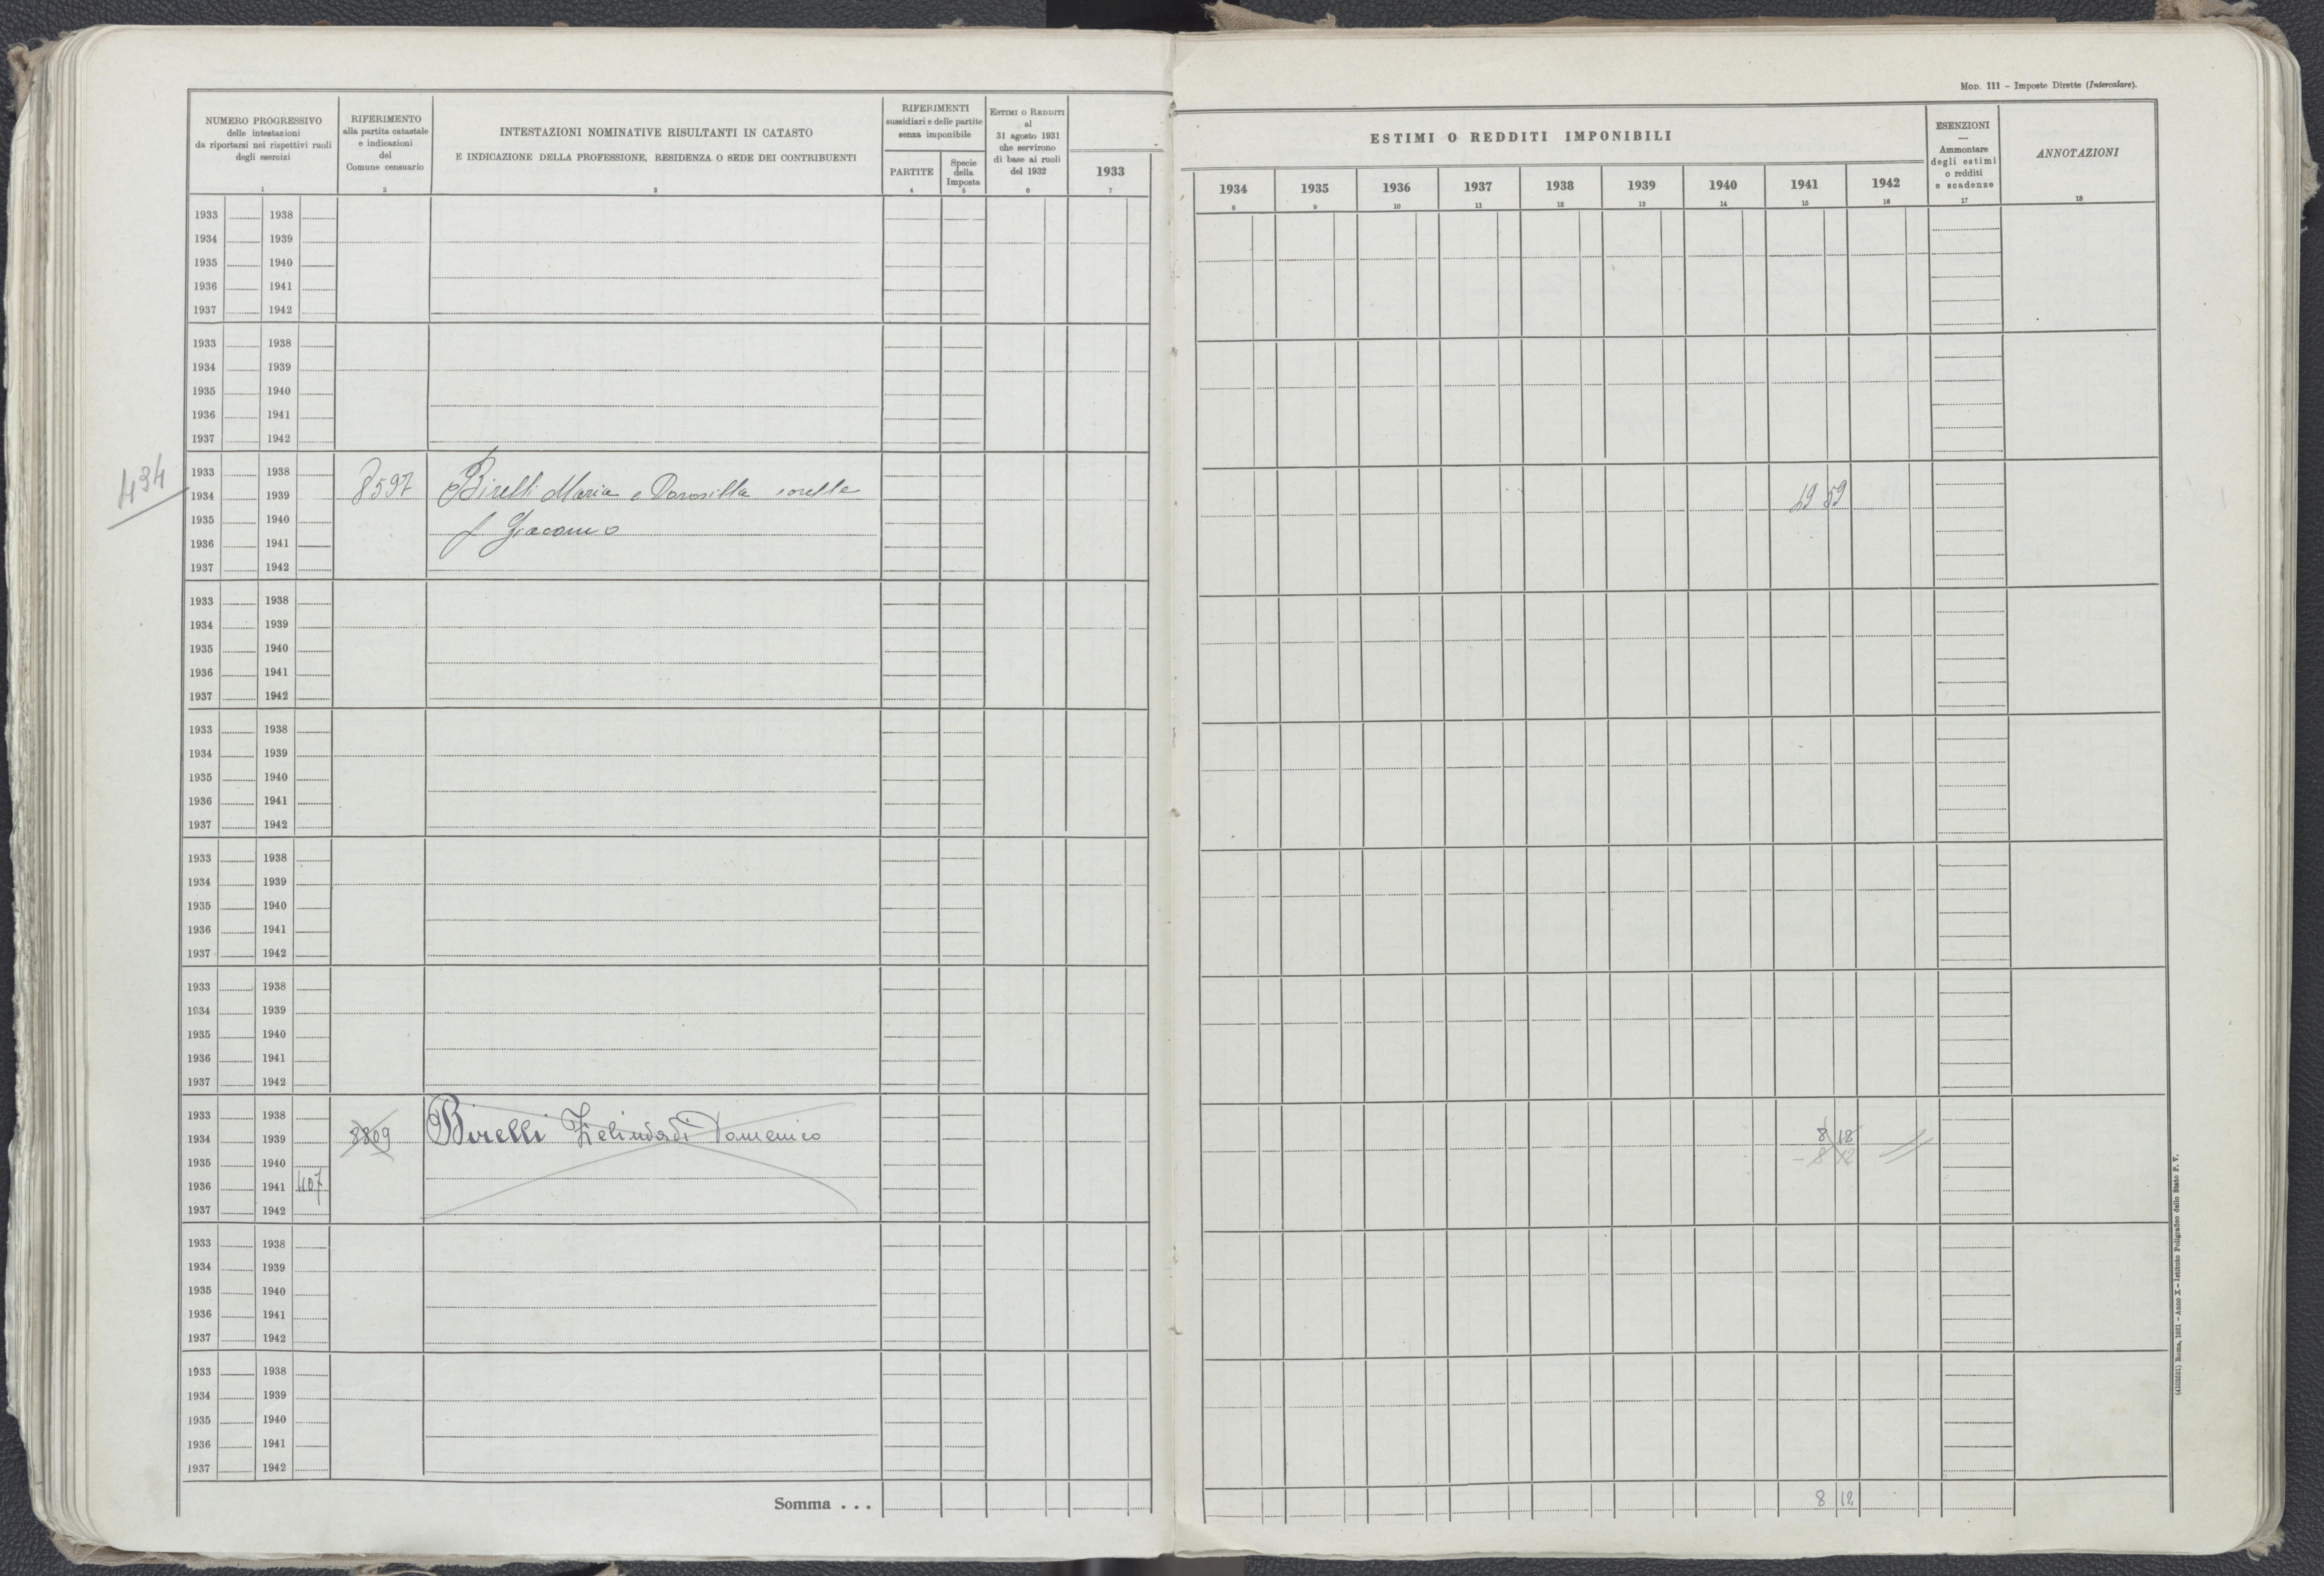 Mod. 111 – Imposte Dirette (Intercalare).
NUMERO PROGRESSIVO
delle intestazioni
da riportarsi nei rispettivi ruoli
degli esercizi
1
RIFERIMENTO
alla partita catastale
e indicazioni
del
Comune censuario
2
INTESTAZIONI NOMINATIVE RISULTANTI IN CATASTO
E INDICAZIONE DELLA PROFESSIONE, RESIDENZA O SEDE DEI CONTRIBUENTI
3
RIFERIMENTI
sussidiari e delle partite
senza imponibile
PARTITE
4
Specie
della
Imposta
5
Estimi o Redditi
al
31 agosto 1931
che servirono
di base ai ruoli
del 1932
6
1933
7
ESTIMI O REDDITI IMPONIBILI
1934 1935 1936 1937 1938 1939 1940 1941 1942
8 9 10 11 12 13 14 15 16
ESENZIONI
—
Ammontare
degli estimi
o redditi
e scadenze
17
ANNOTAZIONI
18
1933 1938
1934 1939
1935 1940
1936 1941
1937 1942
1933 1938
1934 1939
1935 1940
1936 1941
1937 1942
434
1933 1938
1934 1939 8597 Birelli Maria e Dorosilla sorelle 49 59
1935 1940 f Giacomo
1936 1941
1937 1942
1933 1938
1934 1939
1935 1940
1936 1941
1937 1942
1933 1938
1934 1939
1935 1940
1936 1941
1937 1942
1933 1938
1934 1939
1935 1940
1936 1941
1937 1942
1933 1938
1934 1939
1935 1940
1936 1941
1937 1942
1933 1938
1934 1939 8809 Birelli Zelinda di Domenico 8 12
1935 1940 – 8 12
1936 1941 407
1937 1942
1933 1938
1934 1939
1935 1940
1936 1941
1937 1942
1933 1938
1934 1939
1935 1940
1936 1941
1937 1942
Somma . . . 8 12
(4103531) Roma, 1931 – Anno X – Istituto Poligrafico dello Stato P. V.